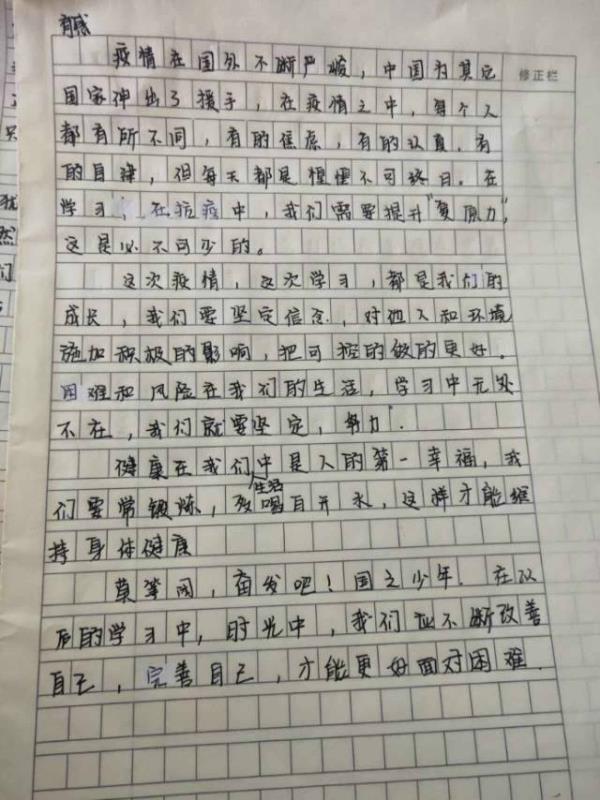 有感
疫情在国外不断严峻，中国为其它
修正栏
国家伸出了援手，在疫情之中，每个人
都有所不同，有的焦虑，有的认真，有
的自律，但每天都是惶惶不可终日。在
学习，在抗疫中，我们需要提升“复原力”，
这是必不可少的。
这次疫情，这次学习，都是我们的
成长，我们要坚定信念，对他人和环境
施加积极的影响，把可控的做的更好。
困难和风险在我们的生活，学习中无处
不在，我们就要坚定，努力.
健康在我们中是人的第一幸福，我
生活
们要常锻炼，喝白开水，这样才能维
持身体健康
莫等闲，奋发吧！国之少年.在以
后的学习中，时光中，我们应不断改善
自己，完善自己，才能更好面对困难.